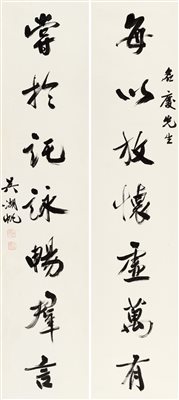 每以放懷虛萬有
慶先生
嘗於託詠暢群言
吳湖帆